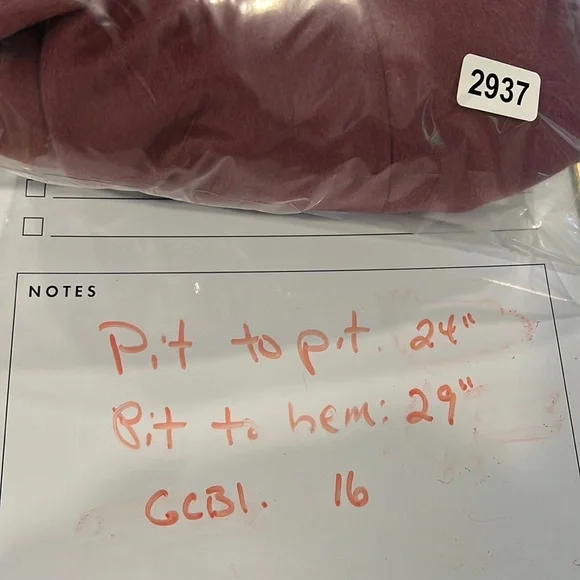 2937
NOTES
Pit to pit. 24"
Pit to hem: 29"
GCB1. 16